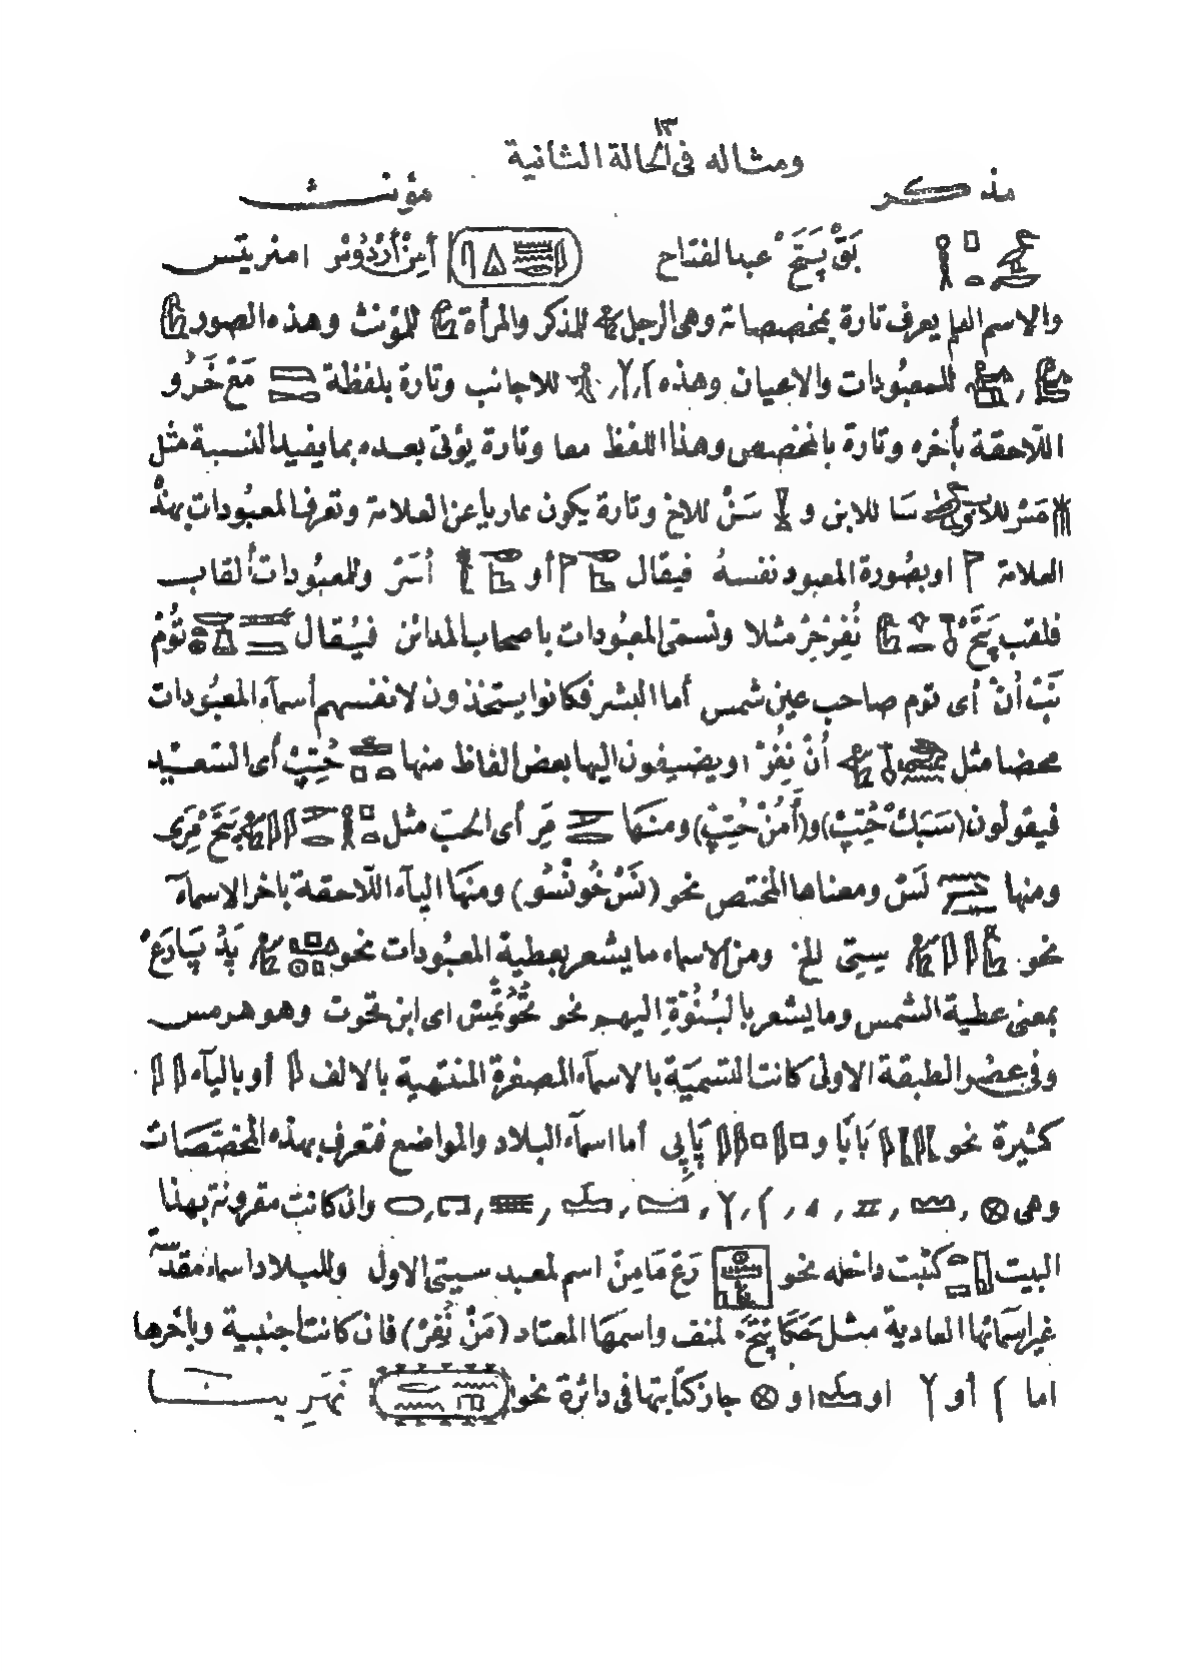 ١٣
ومثاله فى الحالة الثانية
مذكر مؤنث
بَقْ پِتَحْ عبد الفتاح أَمِنْ أَرْدُونْر امنريتس
والاسم العلم يعرف تارة بمخصصاته وهى الرجل للمذكر والمرأة للمؤنث وهذه الصور
, للمعبودات والاعيان وهذه , , للاجانب وتارة بلفظة مَعْ خَرُو
اللاحقة بأخره وتارة بالمخصص وهذا اللفظ معا وتارة يؤتى بعده بما يفيد النسبة مثل
مَسْ للانثى سَا للابن و سَنْ للاخ وتارة يكون عاريا عن العلامة وتعرف المعبودات بهذه
العلامة او بصورة المعبود نفسهُ فيقال أو أُسَرْ وللمعبودات ألقاب
فلقب پتَحْ نُفِرْ حِرْ مثلا وتسمى المعبودات باصحاب المدائن فيُقال تُومْ
نَبْ أُنْ أى توم صاحب عين شمس أما البشر فكانوا يتخذون لانفسهم أسمآء المعبودات
محضا مثل أُنْ نِفُرْ او يضيفون اليها بعض الفاظ منها حُتِپْ أى السّعيد
فيقولون (سَبَكْ حُتِپْ) و(أَمُنْ حُتِپْ) ومنها مِر أى الحب مثل پتَحْ مِرِى
ومنها نَسْ ومعناها المختص نحو (نَسْ خُونْسُو) ومنهَا اليآء اللّاحقة باخر الاسمآء
نحو سِيتِى للخ ومن الاسماء ما يشعر بعطية المعبودات نحو پَدُ پَارَعْ
بمعنى عطية الشمس وما يشعر بالبُنُوّة اليهم نحو تُحُوتْمِسْ اى ابن تحوت وهو هرمس
وفى عصر الطبقة الاولى كانت التسمية بالاسمآء المصغرة المنتهية بالالف أو باليآء
كثيرة نحو بَابَا و پَاپِى أما اسمآء البلاد والمواضع فتعرف بهذه المخصّصَات
وهى , , , , , , , , , , وان كانت مقرونة بهذا
البيت كتبت داخله نحو رَعْ مَامِنْ اسم لمعبد سيتى الاول وللبلاد اسماء مقدّسة
غير اسمائها العادية مثل حَكَاپتَحْ لمنف واسمهَا المعتاد (مَنْ نُفِرْ) فان كانت اجنبية وبأخرها
اما أو او او جاز كتابتها فى دائرة نحو نَهَرِينَا